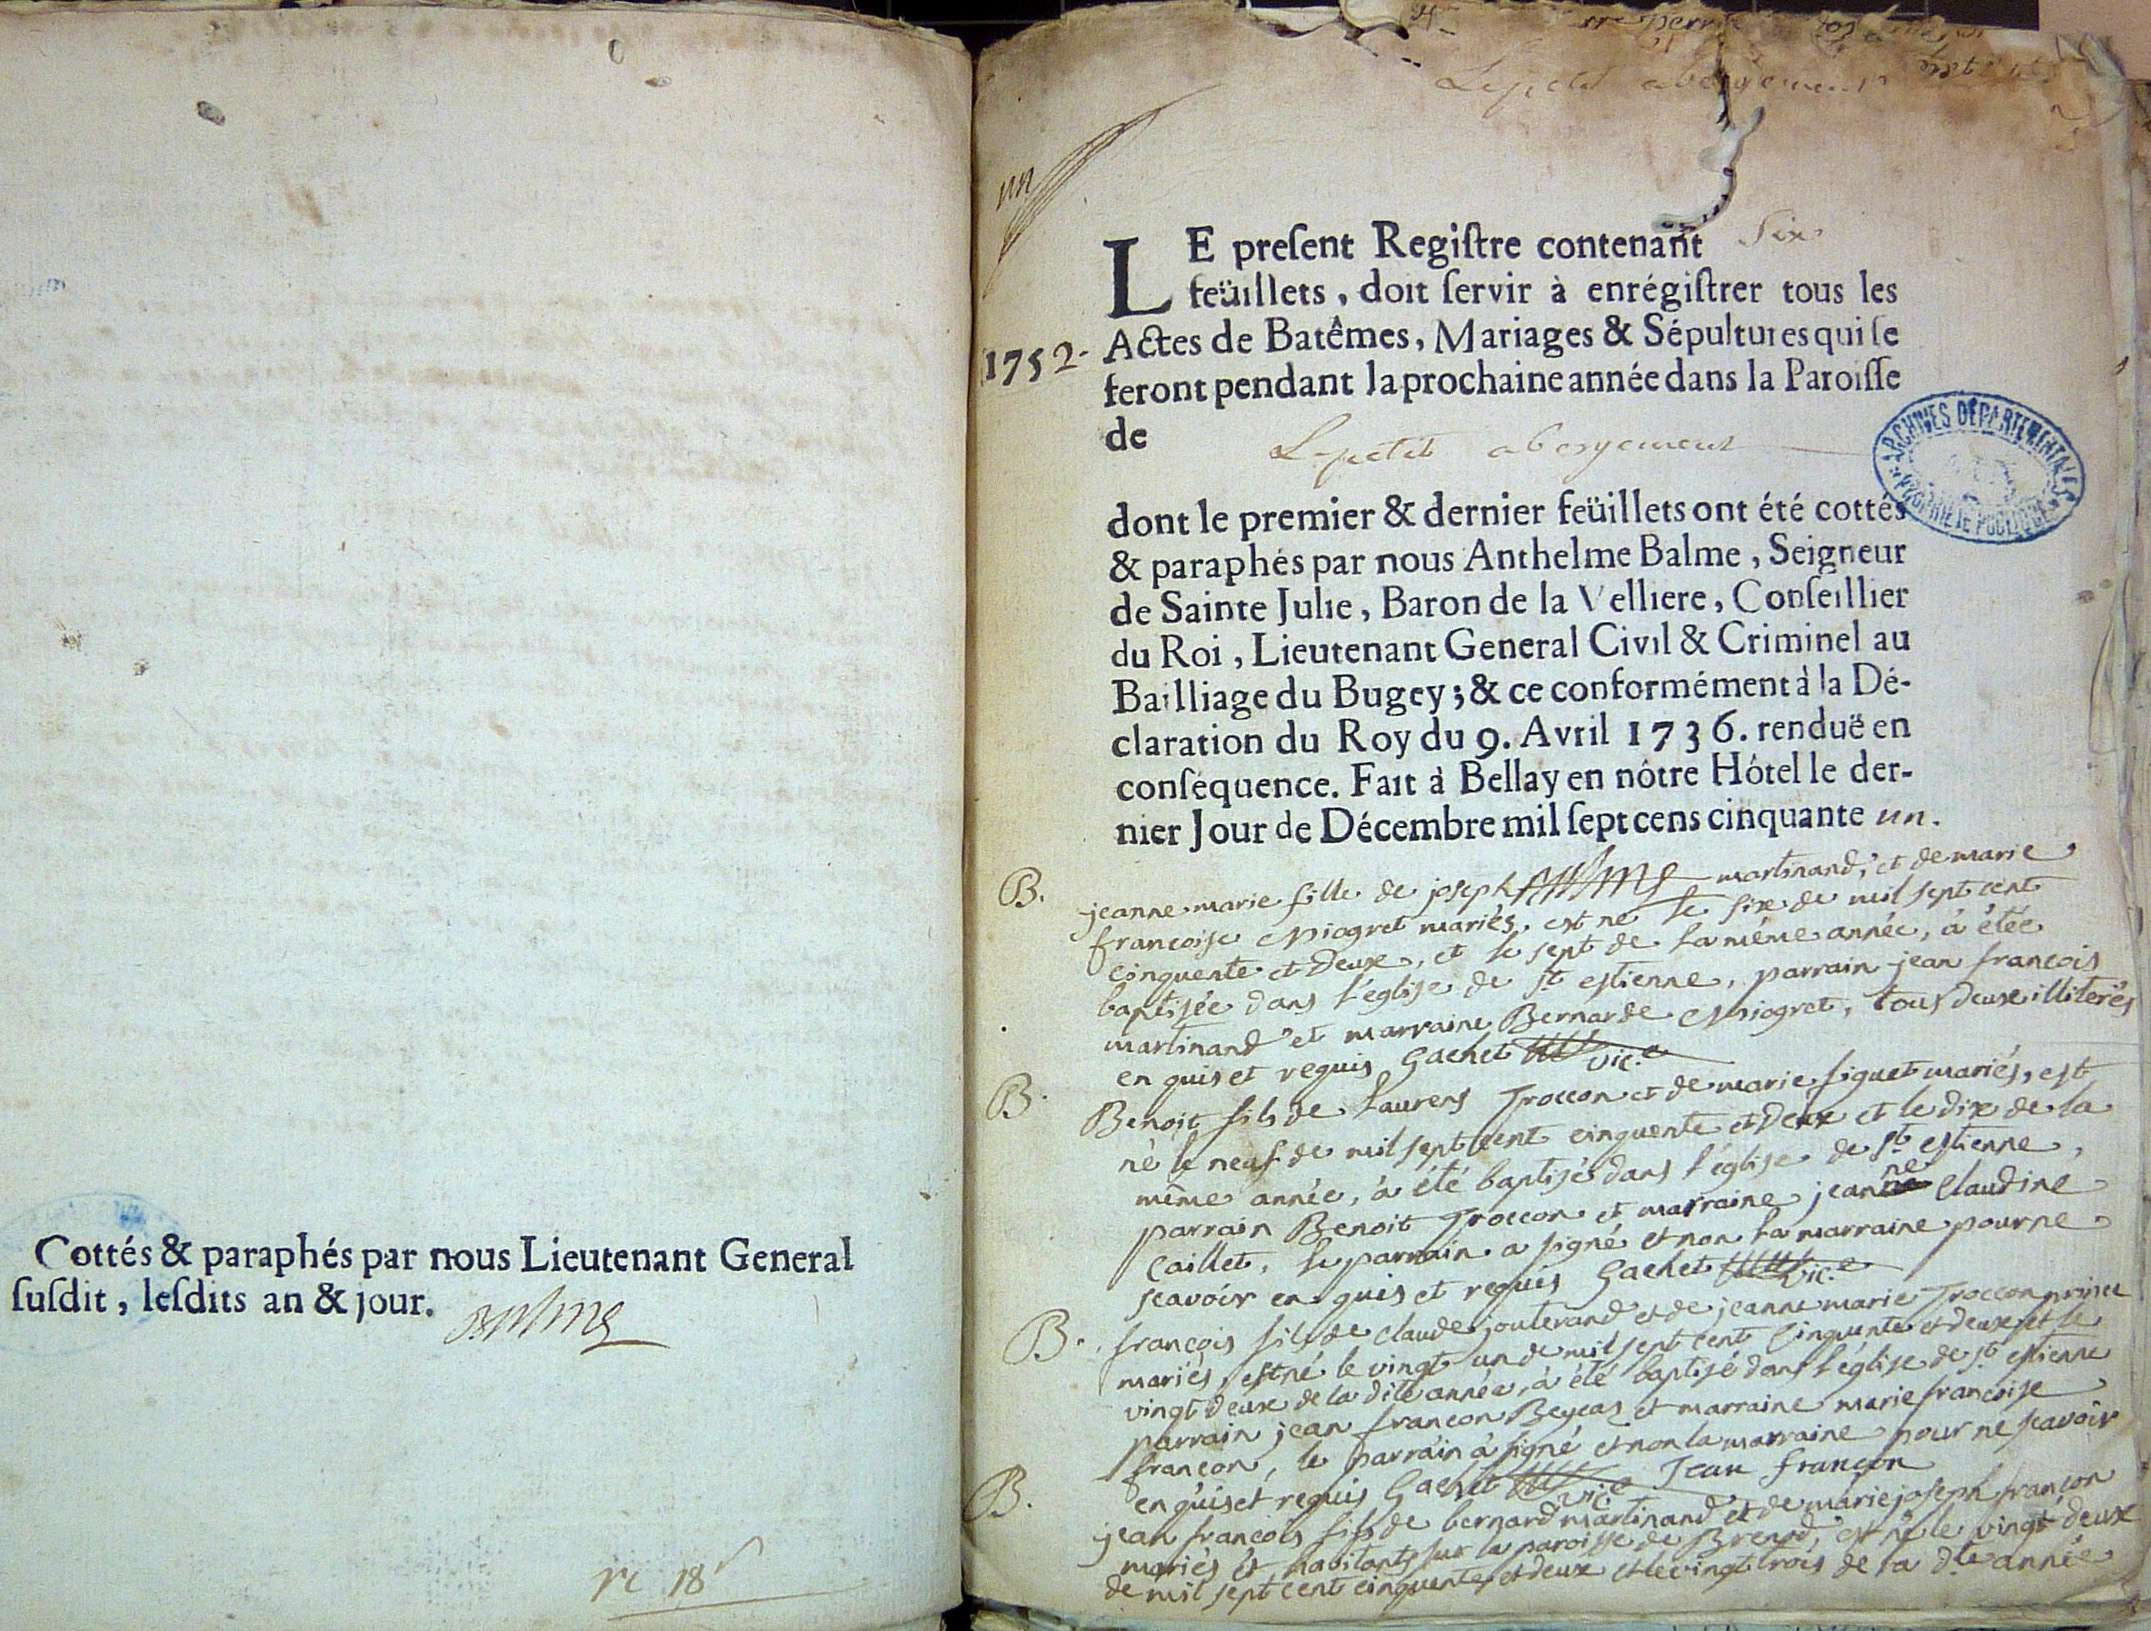 Cottés & paraphés par nous Lieutenant General
ſuſdit, leſdits an & jour.
Balme
Lepetit abergement
un
LE preſent Regiſtre contenant Six
feüillets, doit ſervir à enrégiſtrer tous les
1752.
Actes de Batêmes, Mariages & Sépultures qui ſe
feront pendant la prochaine année dans la Paroiſſe
de Lepetit abergement
ARCHIVES DÉPARTEMENTALES
PROPRIÉTÉ PUBLIQUE
dont le premier & dernier feüillets ont été cottés
& paraphés par nous Anthelme Balme, Seigneur
de Sainte Julie, Baron de la Velliere, Conſeillier
du Roi, Lieutenant General Civil & Criminel au
Bailliage du Bugey; & ce conformément à la Dé-
claration du Roy du 9. Avril 1736. renduë en
conſéquence. Fait à Bellay en nôtre Hôtel le der-
nier Jour de Décembre mil ſept cens cinquante un.
B. jeanne marie fille de joseph Balme martinand, et de marie
francoise miogret mariés, est ne le six de mil sept cent
cinquente et deux, et le sept de la même année, à étée
baptisée dans l'eglise de st estienne, parrain jean francois
martinand et marraine Bernarde miogret, tous deux illiterés
en quis et requis Gachet vic.e
B. Benoit fils de laurens Troccon et de marie figuet mariés, est
né le neuf de mil sept cent cinquente et deux et le dix de la
même année, à été baptisé dans l'église de st estienne,
parrain Benoit Troccon et marraine jeanne claudine
Caillet, le parrain a signé et non la marraine pour ne
scavoir en quis et requis Gachet vic.e
B. françois fils de claude jouterand et de jeanne marie Troccon
mariés, est né le vingt un de mil sept cent cinquente et deux et le
vingt deux de la dite année, à été baptisé dans l'église de st estienne
parrain jean francon et marraine marie francoise
francon, le parrain à signé et non la marraine pour ne scavoir
en quis et requis Gachet vic.e Jean françon
B. jean francois fils de bernard martinand et de marie joseph françon
mariés et habitants sur la paroisse de Brenod, est né le vingt deux
de mil sept cent cinquente et deux et le vingt trois de la dte année